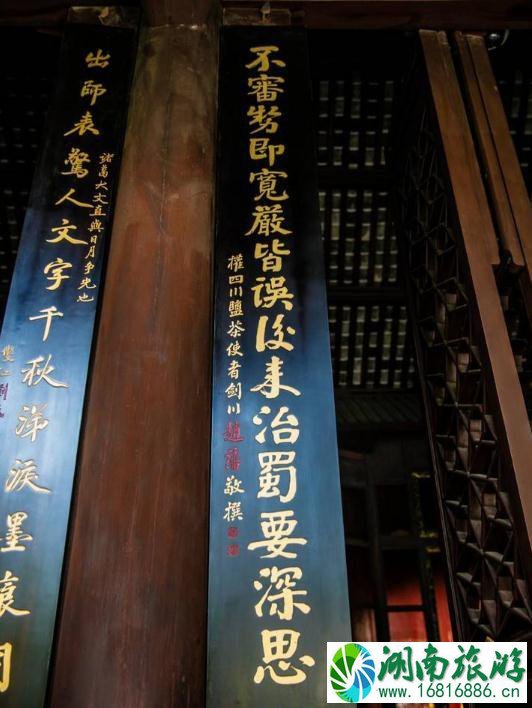 不審勢即寬嚴皆誤後来治蜀要深思
權四川鹽茶使者劍川趙藩敬撰
諸葛大文直與日月争光也
出師表驚人文字千秋涕淚墨痕同
雙江劉
湖南旅游
www.16816886.cn